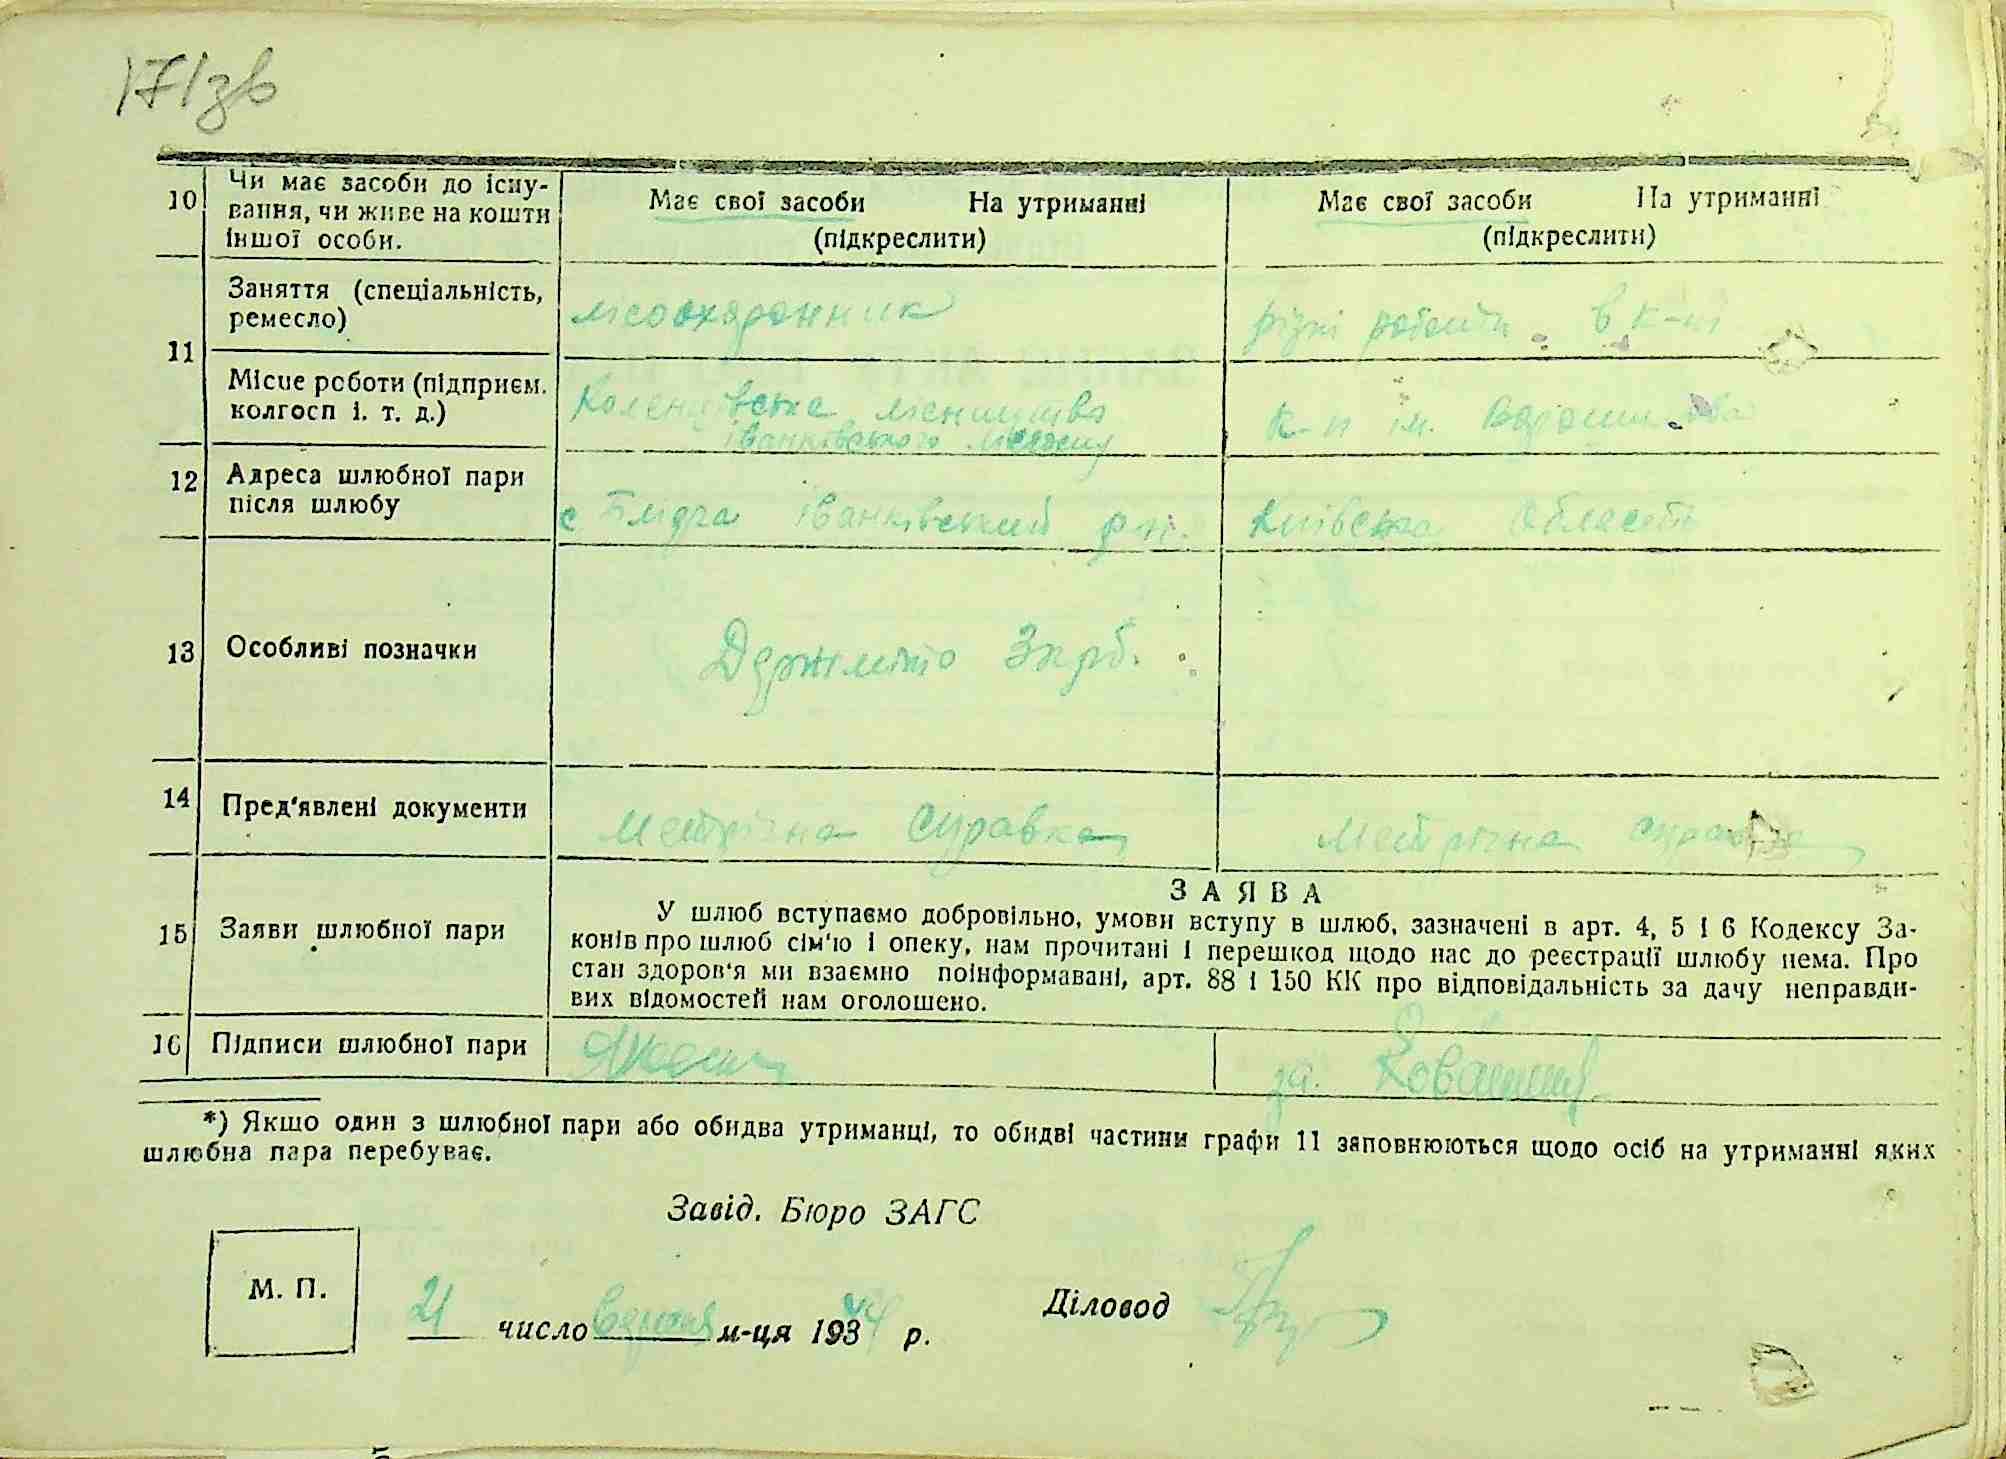 171зв
10 Чи має засоби до існу-
вання, чи живе на кошти
іншої особи.
Має свої засоби На утриманні
(підкреслити)
Має свої засоби На утриманні
(підкреслити)
11 Заняття (спеціальність,
ремесло)
лісоохоронник
різні роботи в к-пі
Місце роботи (підприєм.
колгосп і. т. д.)
Коленцівське лісництво
іванківського
к-п ім. Ворошилова
12 Адреса шлюбної пари
після шлюбу
с Блідча іванківський р-н.
Київська Області
13 Особливі позначки
Держмито 3крб.
14 Пред'явлені документи
Метрічна справка
Метрічна справка
15 Заяви шлюбної пари
ЗАЯВА
У шлюб вступаємо добровільно, умови вступу в шлюб, зазначені в арт. 4, 5 і 6 Кодексу За-
конів про шлюб сім'ю і опеку, нам прочитані і перешкод щодо нас до реєстрації шлюбу нема. Про
стан здоров'я ми взаємно поінформавані, арт. 88 і 150 КК про відповідальність за дачу неправди-
вих відомостей нам оголошено.
16 Підписи шлюбної пари
за.
*) Якщо один з шлюбної пари або обидва утриманці, то обидві частини графи 11 заповнюються щодо осіб на утриманні яких
шлюбна пара перебуває.
Завід. Бюро ЗАГС
М. П.
21 число м-ця 1944 р.
Діловод